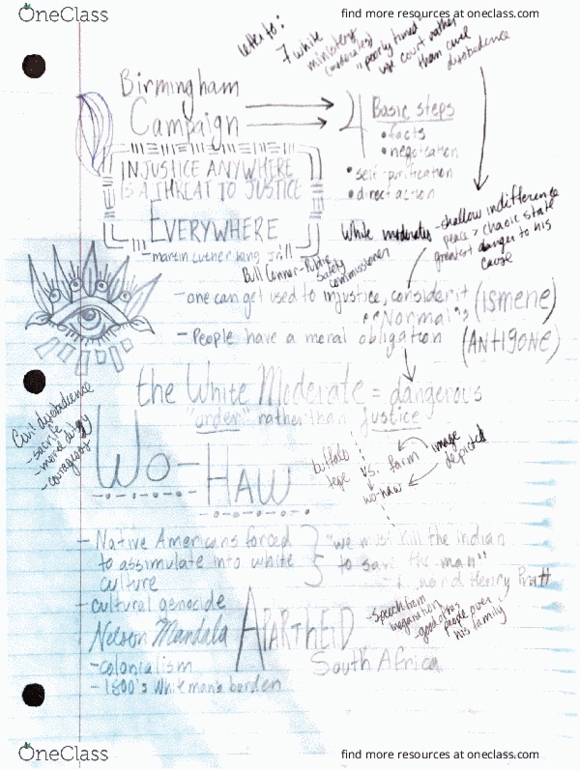 OneClass
find more resources at oneclass.com
letter to:
7 white
ministers
(moderates)
"poorly timed"
use court rather
than civil
disobedience
Birmingham
Campaign
4 Basic steps
• facts
• negotiation
• self-purification
• direct action
INJUSTICE ANYWHERE
IS A THREAT TO JUSTICE
EVERYWHERE
- martin luther king Jr
Bull Connor - Public
Safety
commissioner
White moderates - shallow indifference
peace > chaotic state
greatest danger to his
cause
- one can get used to injustice, consider it
"Normal" (ISMENE)
- People have a moral obligation (ANTIGONE)
the White Moderate = dangerous
"order" rather than justice
Civil disobedience
- sacrifice
- moral
- courageous
WO-HAW
buffalo
vs. farm
wo-haw
image
depicted
- Native Americans forced
to assimilate into white
culture
"we must kill the Indian
to save the man"
Henry Pratt
- cultural genocide
Nelson Mandala
APARTHEID
South Africa
- speech from
- good of his
people over
his family
- colonialism
- 1800's White man's burden
OneClass
find more resources at oneclass.com